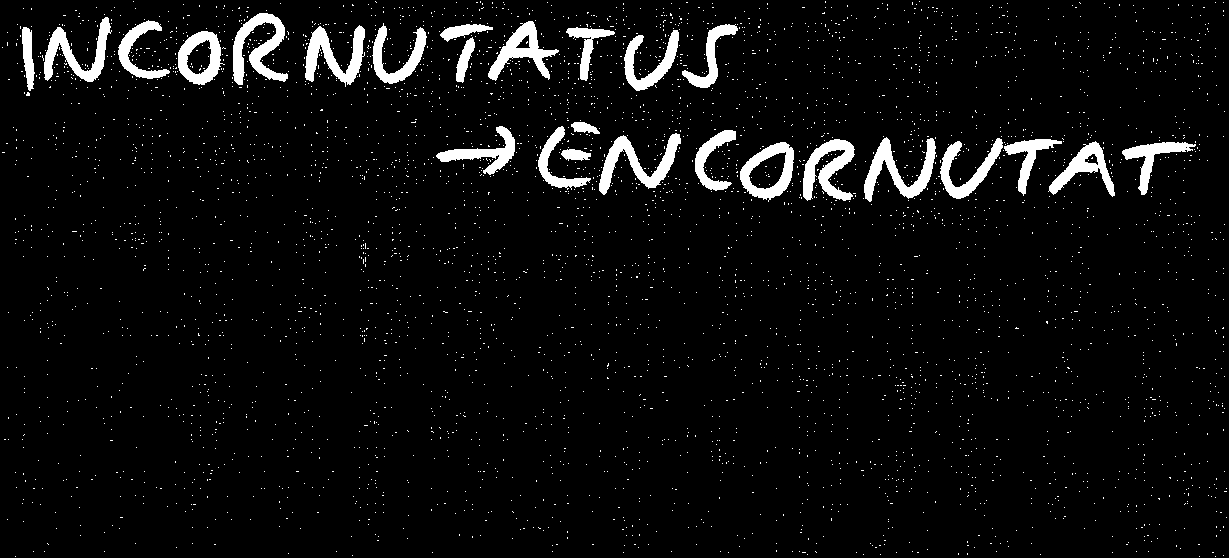 INCORNUTATUS
→ENCORNUTAT